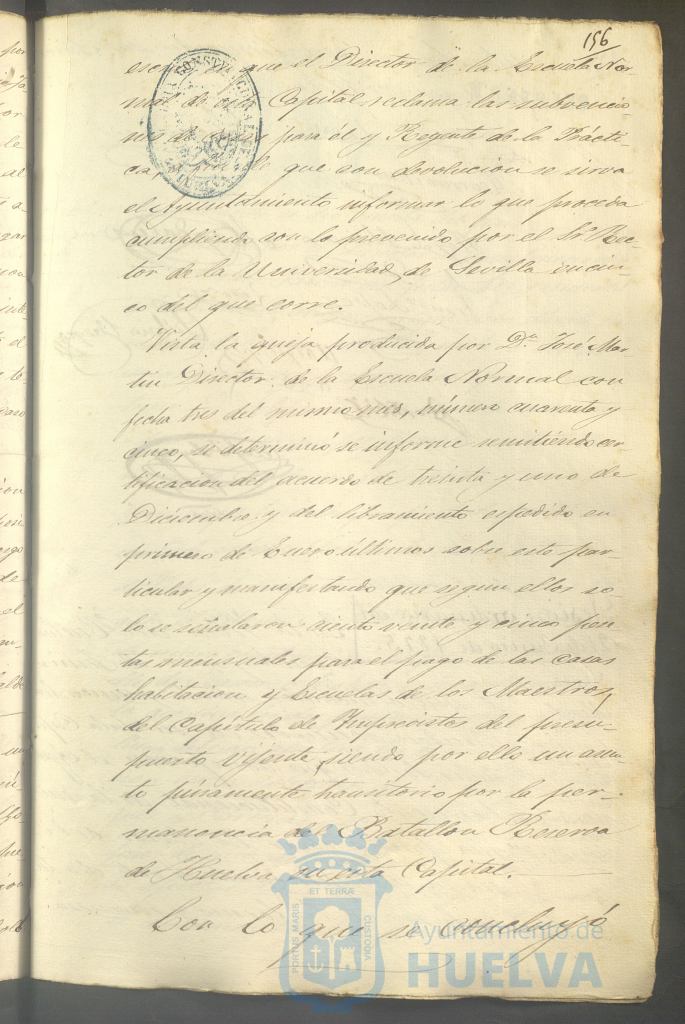 156
que el Director de la Escuela Nor-
mal de esta Capital reclama las subvencio-
nes de para el y Regente de la Prácti-
ca que con devolucion se sirva
el Ayuntamiento informar lo que proceda
cumpliendo con lo prevenido por el Sr. Rec-
tor de la Universidad de Sevilla en cin-
co del que corre.
Vista la queja producida por Dn. José Mar-
tin Director de la Escuela Normal con
fecha tres del mismo mes, número cuarenta y
cinco, se determinó se informe remitiendo cer-
tificacion del acuerdo de treinta y uno de
Diciembre y del libramiento espedido en
primero de Enero últimos sobre este par-
ticular y manifestando que segun ellos so-
lo se señalaron ciento veinte y cinco pese-
tas mensuales para el pago de las casas
habitacion y Escuelas de los Maestros,
del Capítulo de Imprevistos del presu-
puesto vigente, siendo por ello un asun-
to puramente transitorio por la per-
manencia del Batallon Reserva
de Huelva en esta Capital.
Con lo que se concluyó
PORTUS MARIS
ET TERRÆ
CUSTODIA
Ayuntamiento de
HUELVA